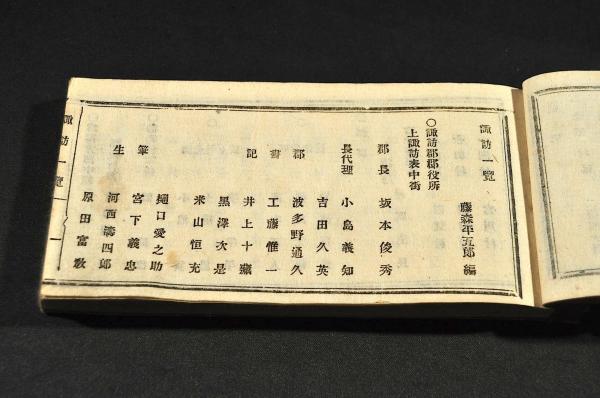 諏訪一覽
藤森平五郎編
〇諏訪郡郡役所
上諏訪表中街
郡長 坂本俊秀
長代理 小島義知
吉田久英
郡 波多野通久
書 工藤惟一
記 井上十藏
黒澤次是
米山恒充
樋口愛之助
筆 宮下義忠
生 河西濤四郎
原田富敎
諏訪一覽 一